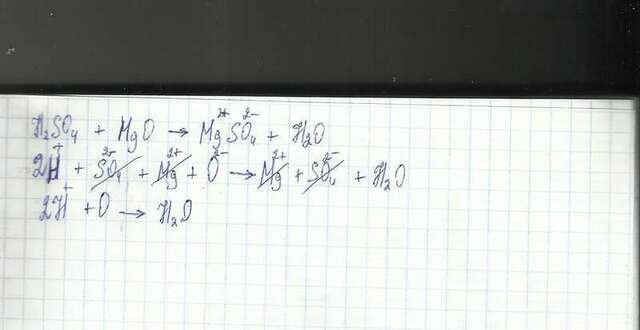 H₂SO₄ + MgO → Mg²⁺SO₄²⁻ + H₂O
2H⁺ + SO₄²⁻ + Mg²⁺ + O²⁻ → Mg²⁺ + SO₄²⁻ + H₂O
2H⁺ + O → H₂O